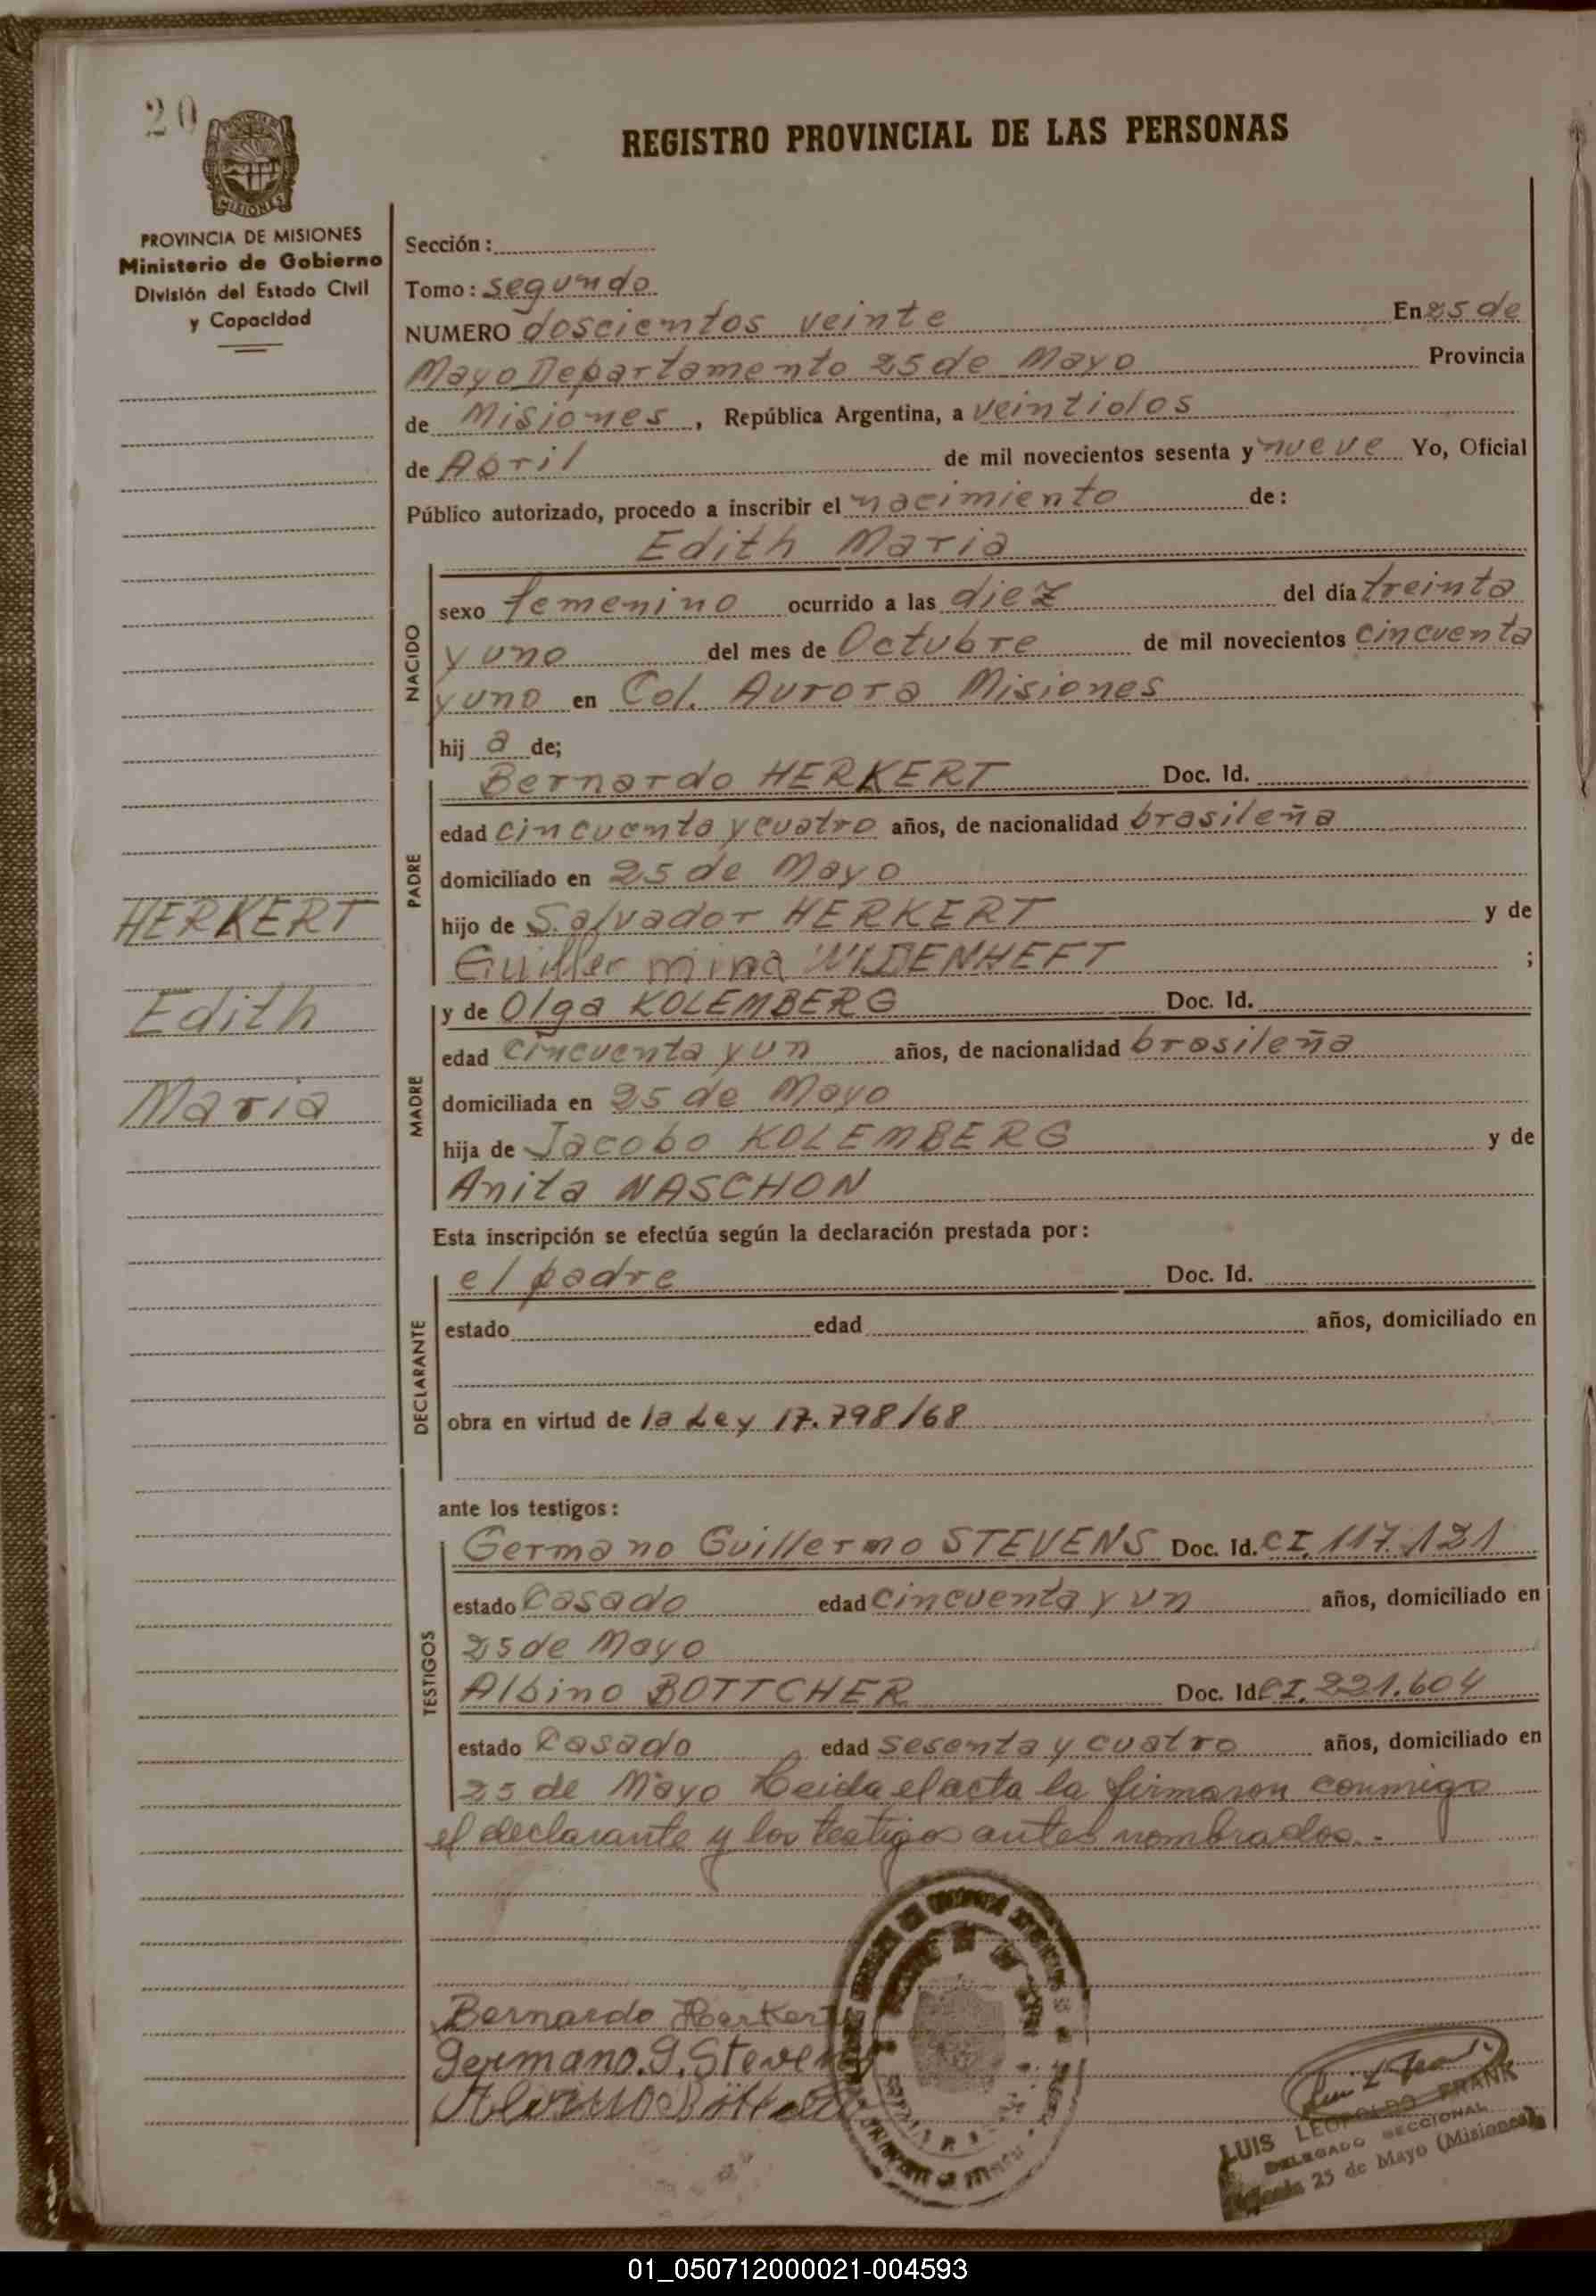 20
REGISTRO PROVINCIAL DE LAS PERSONAS
MISIONES
PROVINCIA DE MISIONES
Ministerio de Gobierno
División del Estado Civil
y Capacidad
Sección:
Tomo: segundo
NUMERO doscientos veinte En 25 de
Mayo Departamento 25 de Mayo Provincia
de Misiones, República Argentina, a veintidos
de Abril de mil novecientos sesenta y nueve Yo, Oficial
Público autorizado, procedo a inscribir el nacimiento de:
Edith Maria
NACIDO
sexo femenino ocurrido a las diez del día treinta
y uno del mes de Octubre de mil novecientos cincuenta
y uno en Col. Aurora Misiones
hij a de;
PADRE
Bernardo HERKERT Doc. Id.
edad cincuenta y cuatro años, de nacionalidad brasileña
domiciliado en 25 de Mayo
hijo de Salvador HERKERT y de
Guillermina WIDENHEFT ;
HERKERT
Edith
Maria
MADRE
y de Olga KOLEMBERG Doc. Id.
edad cincuenta y un años, de nacionalidad brasileña
domiciliada en 25 de Mayo
hija de Jacobo KOLEMBERG y de
Anita NASCHON
Esta inscripción se efectúa según la declaración prestada por:
DECLARANTE
el padre Doc. Id.
estado edad años, domiciliado en
obra en virtud de la Ley 17.798/68
ante los testigos:
TESTIGOS
Germano Guillermo STEVENS Doc. Id. CI. 117.121
estado Casado edad cincuenta y un años, domiciliado en
25 de Mayo
Albino BOTTCHER Doc. Id. CI. 221.604
estado Casado edad sesenta y cuatro años, domiciliado en
25 de Mayo Leida el acta la firmaron conmigo
el declarante y los testigos antes nombrados.-
Bernardo Herkert
Germano. G. Stevens
LUIS LEOPOLDO FRANK
DELEGADO SECCIONAL
25 de Mayo (Misiones)
01_050712000021-004593